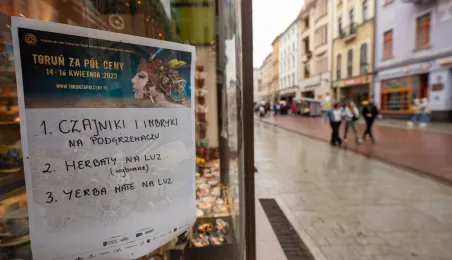 TORUŃ ZA PÓŁ CENY
14-16 KWIETNIA 2023
WWW.TORUNZAPOLCENY.PL
1. CZAJNIKI I IMBRYKI
NA PODGRZEWACZU
2. HERBATY NA LUZ
(wybrane)
3. YERBA MATE NA LUZ